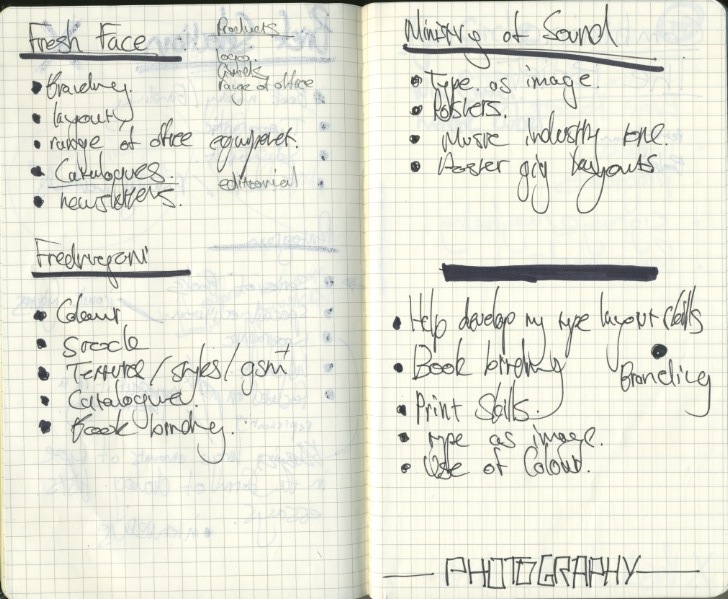 Fresh Face
Products
logo.
range of office
• Branding.
• layouts
• range of office equipment.
• Catalogues.
editorial
• newsletters.
Fredrigoni
• Colour
• Stock
• Texture/styles/gsm+
• Catalogue.
• Book binding.
Ministry of Sound
• Type. as image.
• Posters.
• Music industry tone.
• Poster gig layouts
• Help develop my type layout skills
• Book binding
• Branding
• Print Skills.
• Type as image.
• Use of Colour.
PHOTOGRAPHY